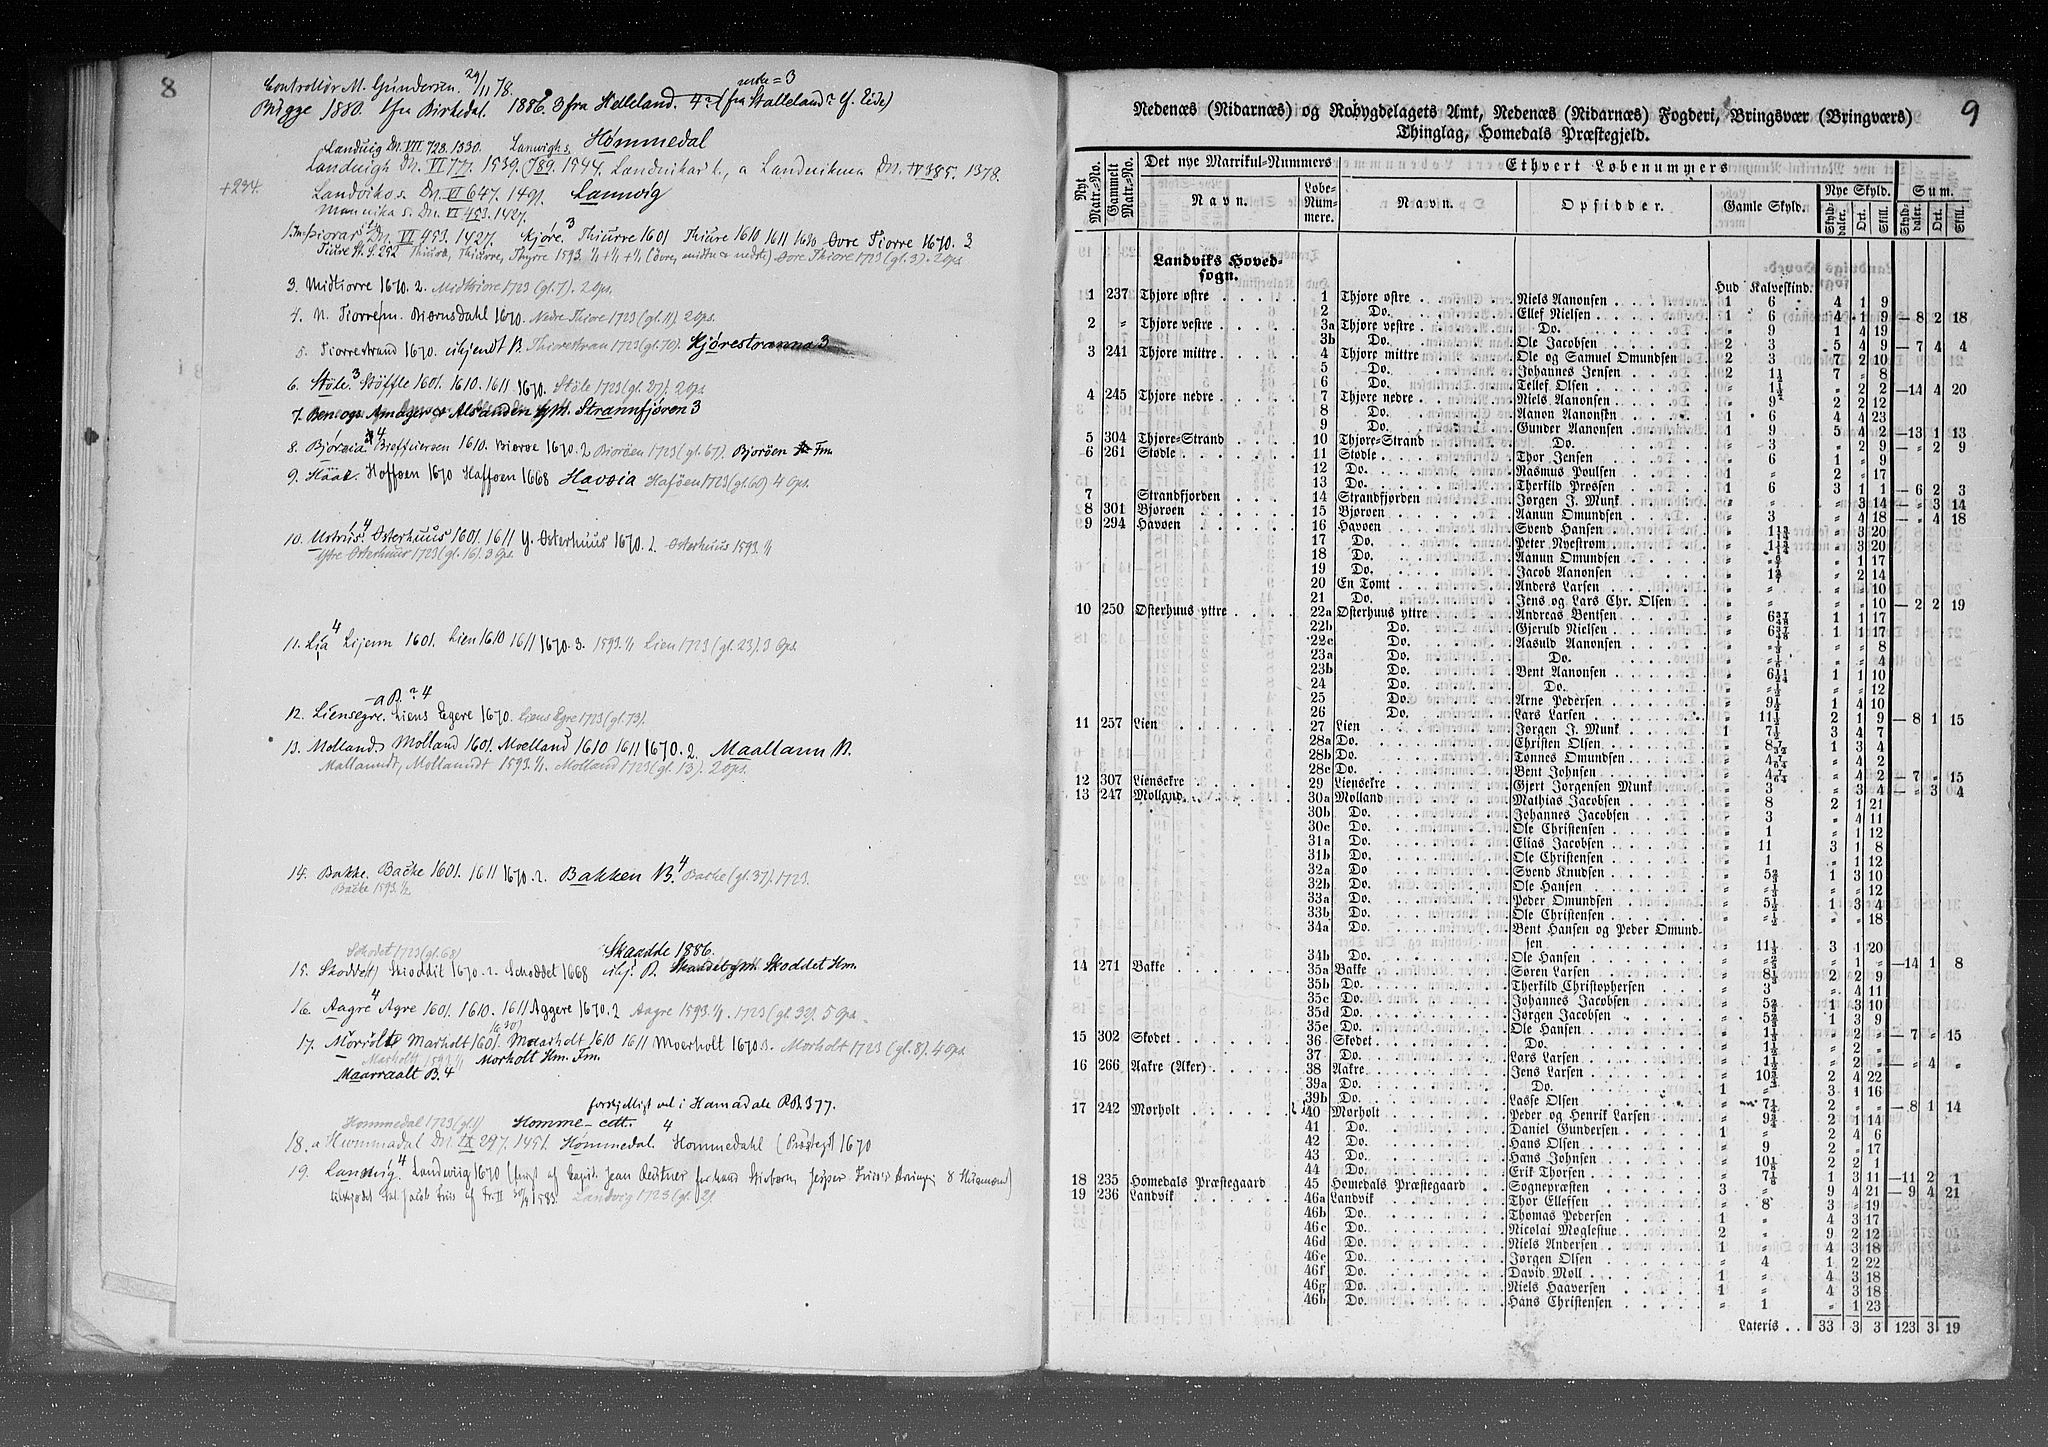 8
Controllör M. Gundersen 29/11 78.
Bugge 1880. fra Birkedal. 1886. 3 fra Helleland. 4 (fra Stalleland? Y. Eide)
Landuig Dn. VII 728. 1530. Lanwigh s. Hømmedal
Landuigh Dn. VI 777. 1539. (789. 1544. Landvikar l., a Landvikum Dn. IV 385. 1378.
+234.
Landviko s. Dn. VI 647. 1491. Lannvig
Mannika s. Dn. VI 453. 1427.
Dn. VI 453. 1427. Kjøre. 3 Thiurre 1601 Thiure 1610 1611 1610 Øvre Tiorre 1670. 3
3. Midtiorre 1670. 2. Midtkiore 1723 (gl. 7). 2 Ops.
4. N. Tiorre Biærnsdahl 1670. Nedre Thiore 1723 (gl. 11). 2 Ops.
5. Tiorrestrand 1670. ukjendt B. Thiorestran 1723 (gl. 70). Kjørestranna 3
6. Støle. 3 Støffle 1601. 1610. 1611 1670. Støle 1723 (gl. 27). 2 Ops.
7. Strannfjøren 3
8. Bjørøia 4 1610. Biørøe 1670. 2 Biørøen 1723 (gl. 67). Bjorøen Fm
9. Hofføen 1670 Hafføen 1668 Havøia Haføen 1723 (gl. 60) 4 Ops.
10. Ustrius 4 Osterhuus 1601. 1611 Y. Østerhuus 1670. 2. Østerhuus 1593. 1/1
Ytre Østerhuus 1723 (gl. 16). 3 Ops.
11. Lia 4 Lijenn 1601. Lien 1610 1611 1670. 3. 1593. 1/1 Lien 1723 (gl. 23). 3 Ops.
-a B. ? 4
12. Liensegre. Liens Egere 1670. Liens Egre 1723 (gl. 73).
13. Molland. Molland 1601. Moelland 1610 1611 1670. 2. Maallann B.
Mallanndt, Mollanndt 1593. 1/1. Molland 1723 (gl. 13). 2 Ops.
14. Bakke. Backe 1601. 1611 1670. 2. Bakken B. 4 Backe (gl. 37). 1723.
Backe 1593. 1/2.
Skodet 1723 (gl. 68) Skaadde 1886.
15. Skoddet Skoddit 1670. 2. Schoddet 1668 Skoddet Hm.
16. Aagre 4 Agre 1601. 1610. 1611 Aggere 1670. 2 Aagre 1593. 1/1. 1723 (gl. 32). 5 Ops.
17. Mörrolt Marholt 1601. Maarholt 1610 1611 Moerholt 1670. 3. Morholt 1723 (gl. 8). 4 Ops.
Marholt 1593. 1/1 Morholt Hm. Fm.
Maarraalt B. 4
forskjelligt vel i Hamadale RB. 377.
Hommedal 1723 (gl. 1) Homme- cett. 4
18. a Hummadal Dn. IX 297. 1451. Hømmedal. Hommedahl (Præstegd) 1670
19. Lannvig. 4 Landwiig 1670
Landvig 1723 (gl. 2).
9
Nedenæs (Nidarnæs) og Robygdelagets Amt, Nedenæs (Nidarnæs) Fogderi, Bringsvær (Bringværs)
Thinglag, Homedals Præstegjeld.
Nyt Matr.-No. Gammelt Matr.-No. Det nye Matrikul-Nummers Navn. Ethvert Løbenummers Løbe-Nummere. Navn. Opsidder. Gamle Skyld. Nye Skyld. Skylddaler. Ort. Skill. Sum. Skylddaler. Ort. Skill.
Landviks Hovedsogn.
Hud Kalveskind.
1 237 Thjøre østre 1 Thjøre østre Niels Aanonsen 1 6 4 1 9
2 Do. Ellef Nielsen 1 6 4 1 9 — 8 2 18
2 " Thjøre vestre 3a Thjøre vestre Do. " 9 1 4 19
3b Do. Ole Jacobsen 2 3 5 4 9 — 7 4 4
3 241 Thjøre mittre 4 Thjøre mittre Ole og Samuel Omundsen 2 3 7 2 10
5 Do. Johannes Jensen 2 1½ 7 " 8
6 Do. Tellef Olsen " 1½ " 2 2 — 14 4 20
4 245 Thjøre nedre 7 Thjøre nedre Niels Aanonsen " 9 2 2 12
8 Do. Aanon Aanonsen 1 6 4 4 23
9 Do. Gunder Aanonsen 1 9 5 4 2 — 13 1 13
5 304 Thjøre-Strand 10 Thjøre-Strand Do. " 3 " 2 9 — " 2 9
6 261 Stødle 11 Stødle Thor Jensen " 6 1 " 9
12 Do. Rasmus Poulsen 1 " 2 " 17
13 Do. Therkild Prossen 1 6 3 1 1 — 6 2 3
7 Strandfjorden 14 Strandfjorden Jørgen J. Munk " " " 3 14 — " 3 14
8 301 Bjorøen 15 Bjorøen Aanun Omundsen " 3 " 4 18 — " 4 18
9 294 Havøen 16 Havøen Svend Hansen " 1¾ " 3 20
17 Do. Peter Nyestrøm " 1¾ " 3 20
18 Do. Aanun Omundsen " " 1 17
19 Do. Jacob Aanonsen " " 2 14
20 En Tomt Anders Larsen " " " " 10
21 Do. Jens og Lars Chr. Olsen " " " " 10 — 2 2 19
10 250 Østerhuus yttre 22a Østerhuus yttre Andreas Bentsen " 1 1 17
22b Do. Gjeruld Nielsen " 1 1 17
22c Do. Aasuld Aanonsen " " " 8
23a Do. Do. " " " 4
23b Do. Bent Aanonsen " 1 1 10
24 Do. Do. " ½ " " 12
25 Do. Arne Pedersen " 9½ 1 4 10
26 Do. Lars Larsen " 11½ 2 1 9 — 8 1 15
11 257 Lien 27 Lien Jørgen J. Munk 1 3 4 7
28a Do. Christen Olsen " 1 3 4
28b Do. Tønnes Omundsen " " 4 2
28c Do. Bent Johnsen " " 4 2 — 7 " 15
12 307 Liensekre 29 Liensekre Gjert Jørgensen Munk " 3 " 3 4 — " 3 4
13 247 Molland 30a Molland Mathias Jacobsen " 8 2 1 21
30b Do. Johannes Jacobsen " 3 " 4 11
30c Do. Ole Christensen " 1 " 1 12
31a Do. Elias Jacobsen " 11 3 1 8
31b Do. Ole Christensen " 1 " 1 12
32a Do. Svend Knudsen " 5⅔ 1 3 10
32b Do. Ole Hansen " ⅓ " " 12
33a Do. Peder Omundsen " 5½ 1 3 4
33b Do. Ole Christensen " ½ " " 18
34a Do. Bent Hansen og Peder Omundsen " 11½ 3 1 20
34b Do. Ole Hansen " " 1 " — 14 1 8
14 271 Bakke 35a Bakke Søren Larsen " 8⅓ 2 2 9
35b Do. Therkild Christophersen " 3 " 4 11
35c Do. Johannes Jacobsen " 5⅔ 1 3 10
35d Do. Jørgen Jacobsen " 5⅔ 1 3 9
35e Do. Ole Hansen " 1⅓ " 2 " — 7 " 15
15 302 Skodet 36 Skodet Do. " 1½ " 2 "
37 Do. Lars Larsen " 1½ " 2 " — " 4 "
16 266 Aakre (Aker) 38 Aakre Jens Larsen " 2 4 22
39a Do. Do. 1 " 3 1 16
39b Do. Lasse Olsen " 7¼ 2 " " — 8 1 14
17 242 Morholt 40 Morholt Peder og Henrik Larsen " 9¾ 2 1 14
41 Do. Daniel Gundersen 1 " 2 4 6
42 Do. Hans Olsen " 9 2 " 17
43 Do. Hans Johnsen " 10⅛ 2 2 1
44 Do. Erik Thorsen " 7⅛ 1 3 11 — 11 2 1
18 235 Homedals Præstegaard 45 Homedals Præstegaard Sognepræsten 3 " 9 4 21 — 9 4 21
19 236 Landvik 46a Landvik Thor Ellefsen " 8 3 " 19
46b Do. Thomas Pedersen 1 " 4 3 17
46c Do. Nicolai Møglestue 2 " 9 2 12
46d Do. Niels Andersen 1 " 4 3 18
46e Do. Jørgen Olsen " 4 1 2 22
46f Do. David Moll 1 " 4 3 18
46g Do. Niels Haaversen 1 " 4 3 18
46h Do. Hans Christensen " 1 " 1 23
Lateris 33 3 3 123 3 19